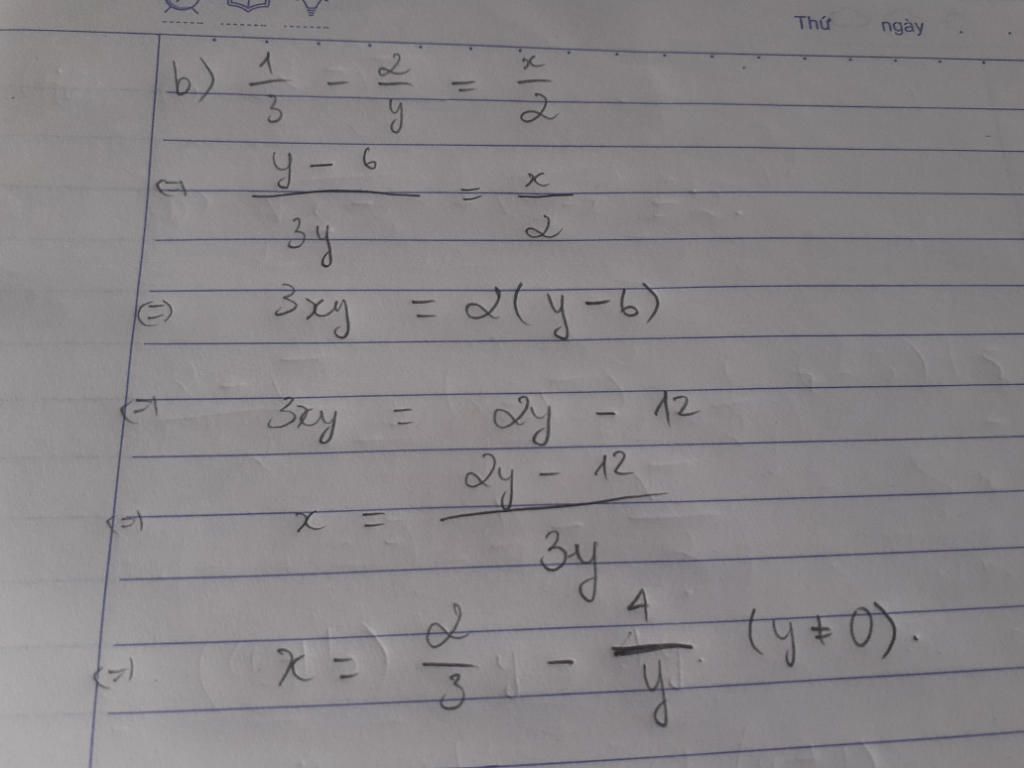 Thứ ngày
b) 1/3 - 2/y = x/2
⇔ (y - 6)/3y = x/2
⇔ 3xy = 2(y - 6)
⇔ 3xy = 2y - 12
⇔ x = (2y - 12)/3y
⇔ x = 2/3 - 4/y (y ≠ 0).